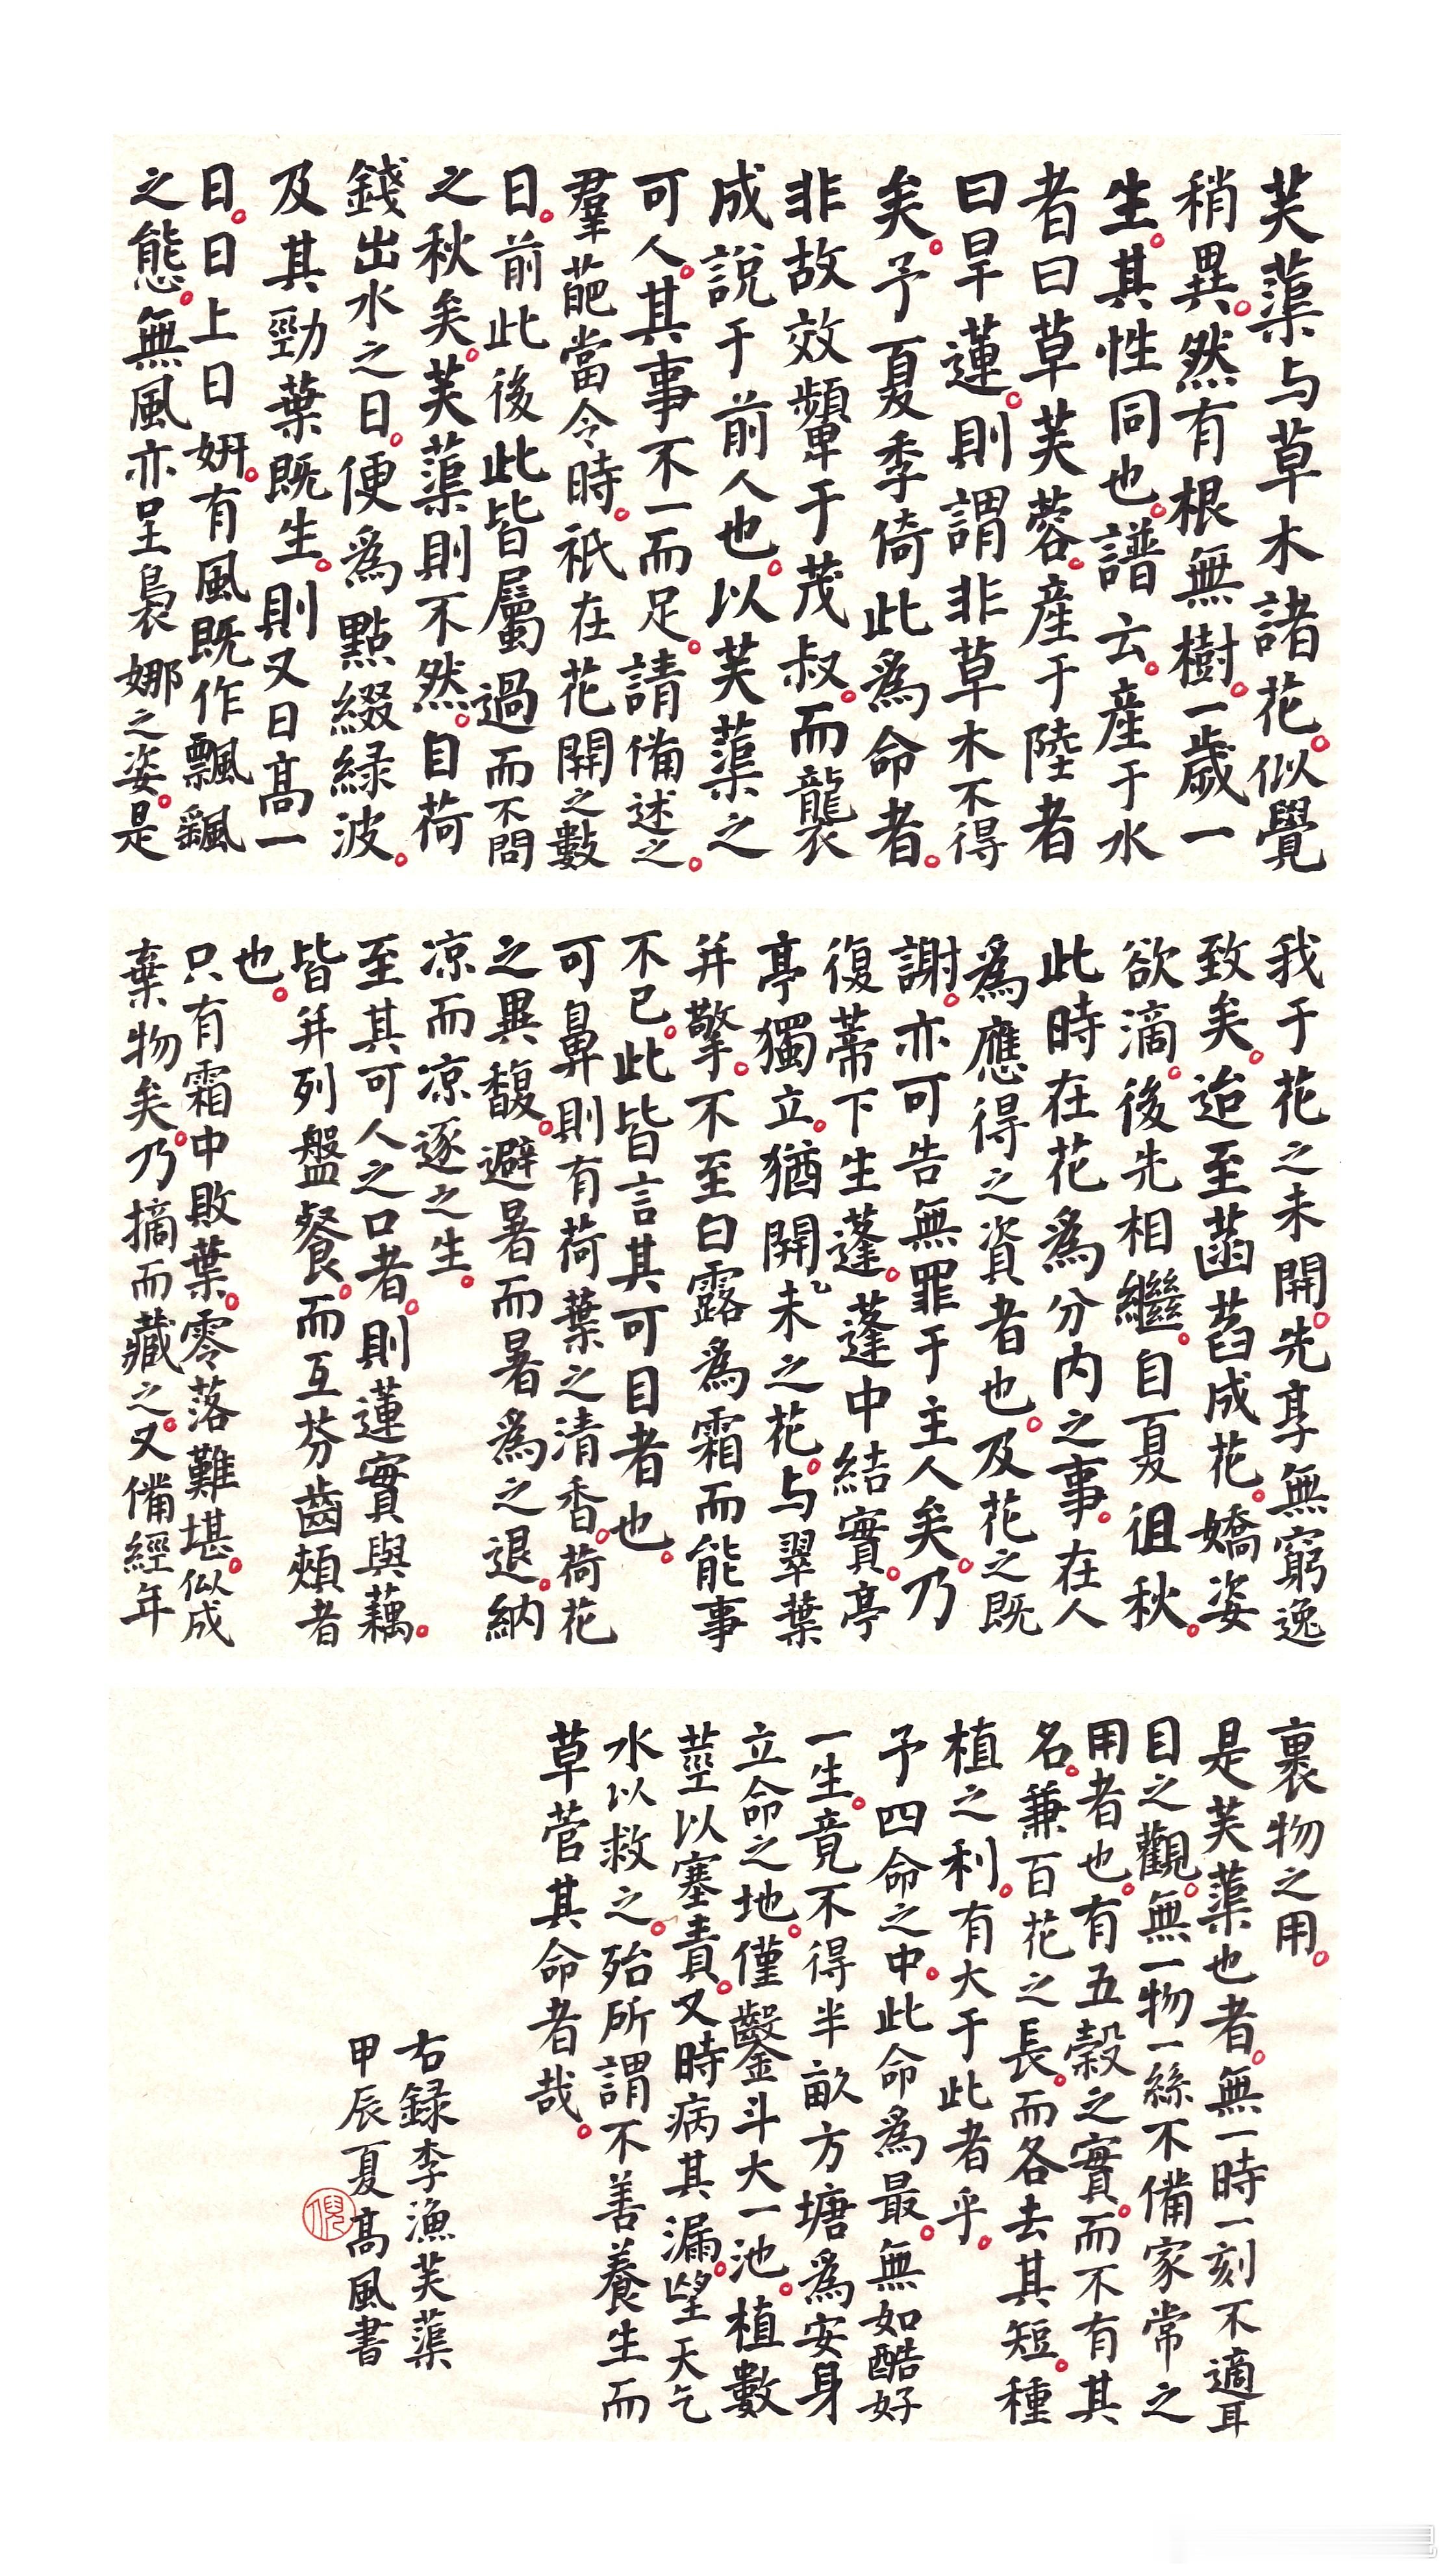 芙蕖与草木諸花。似覺
稍異。然有根無樹。一歲一
生。其性同也。譜云。産于水
者曰草芙蓉。産于陸者
曰旱蓮。則謂非草木不得
矣。予夏季倚此爲命者。
非故效顰于茂叔。而襲
成説于前人也。以芙蕖之
可人。其事不一而足。請備述之。
羣葩當令時。衹在花開之數
日。前此後此皆屬過而不問
之秋矣。芙蕖則不然。自荷
錢出水之日。便爲點綴緑波。
及其勁葉既生。則又日高一
日。日上日妍。有風既作飄颻
之態。無風亦呈裊娜之姿。是
我于花之未開。先享無窮逸
致矣。迨至菡萏成花。嬌姿
欲滴。後先相繼。自夏徂秋。
此時在花爲分内之事。在人
爲應得之資者也。及花之既
謝。亦可告無罪于主人矣。乃
復蒂下生蓬。蓬中結實。亭
亭獨立。猶開未之花。与翠葉
并擎。不至白露爲霜而能事
不已。此皆言其可目者也。
可鼻則有荷葉之清香。荷花
之異馥。避暑而暑爲之退。納
凉而凉逐之生。
至其可人之口者。則蓮實與藕。
皆并列盤餐。而互芬齒頰者
也。
只有霜中敗葉。零落難堪。似成
棄物矣。乃摘而藏之。又備經年
裹物之用。
是芙蕖也者。無一時一刻不適耳
目之觀。無一物一絲不備家常之
用者也。有五穀之實。而不有其
名。兼百花之長。而各去其短。種
植之利。有大于此者乎。
予四命之中。此命爲最。無如酷好
一生。竟不得半畝方塘爲安身
立命之地。僅鑿斗大一池。植數
莖以塞責。又時病其漏。望天乞
水以救之。殆所謂不善養生而
草菅其命者哉。
右録李漁芙蕖
甲辰夏高風書